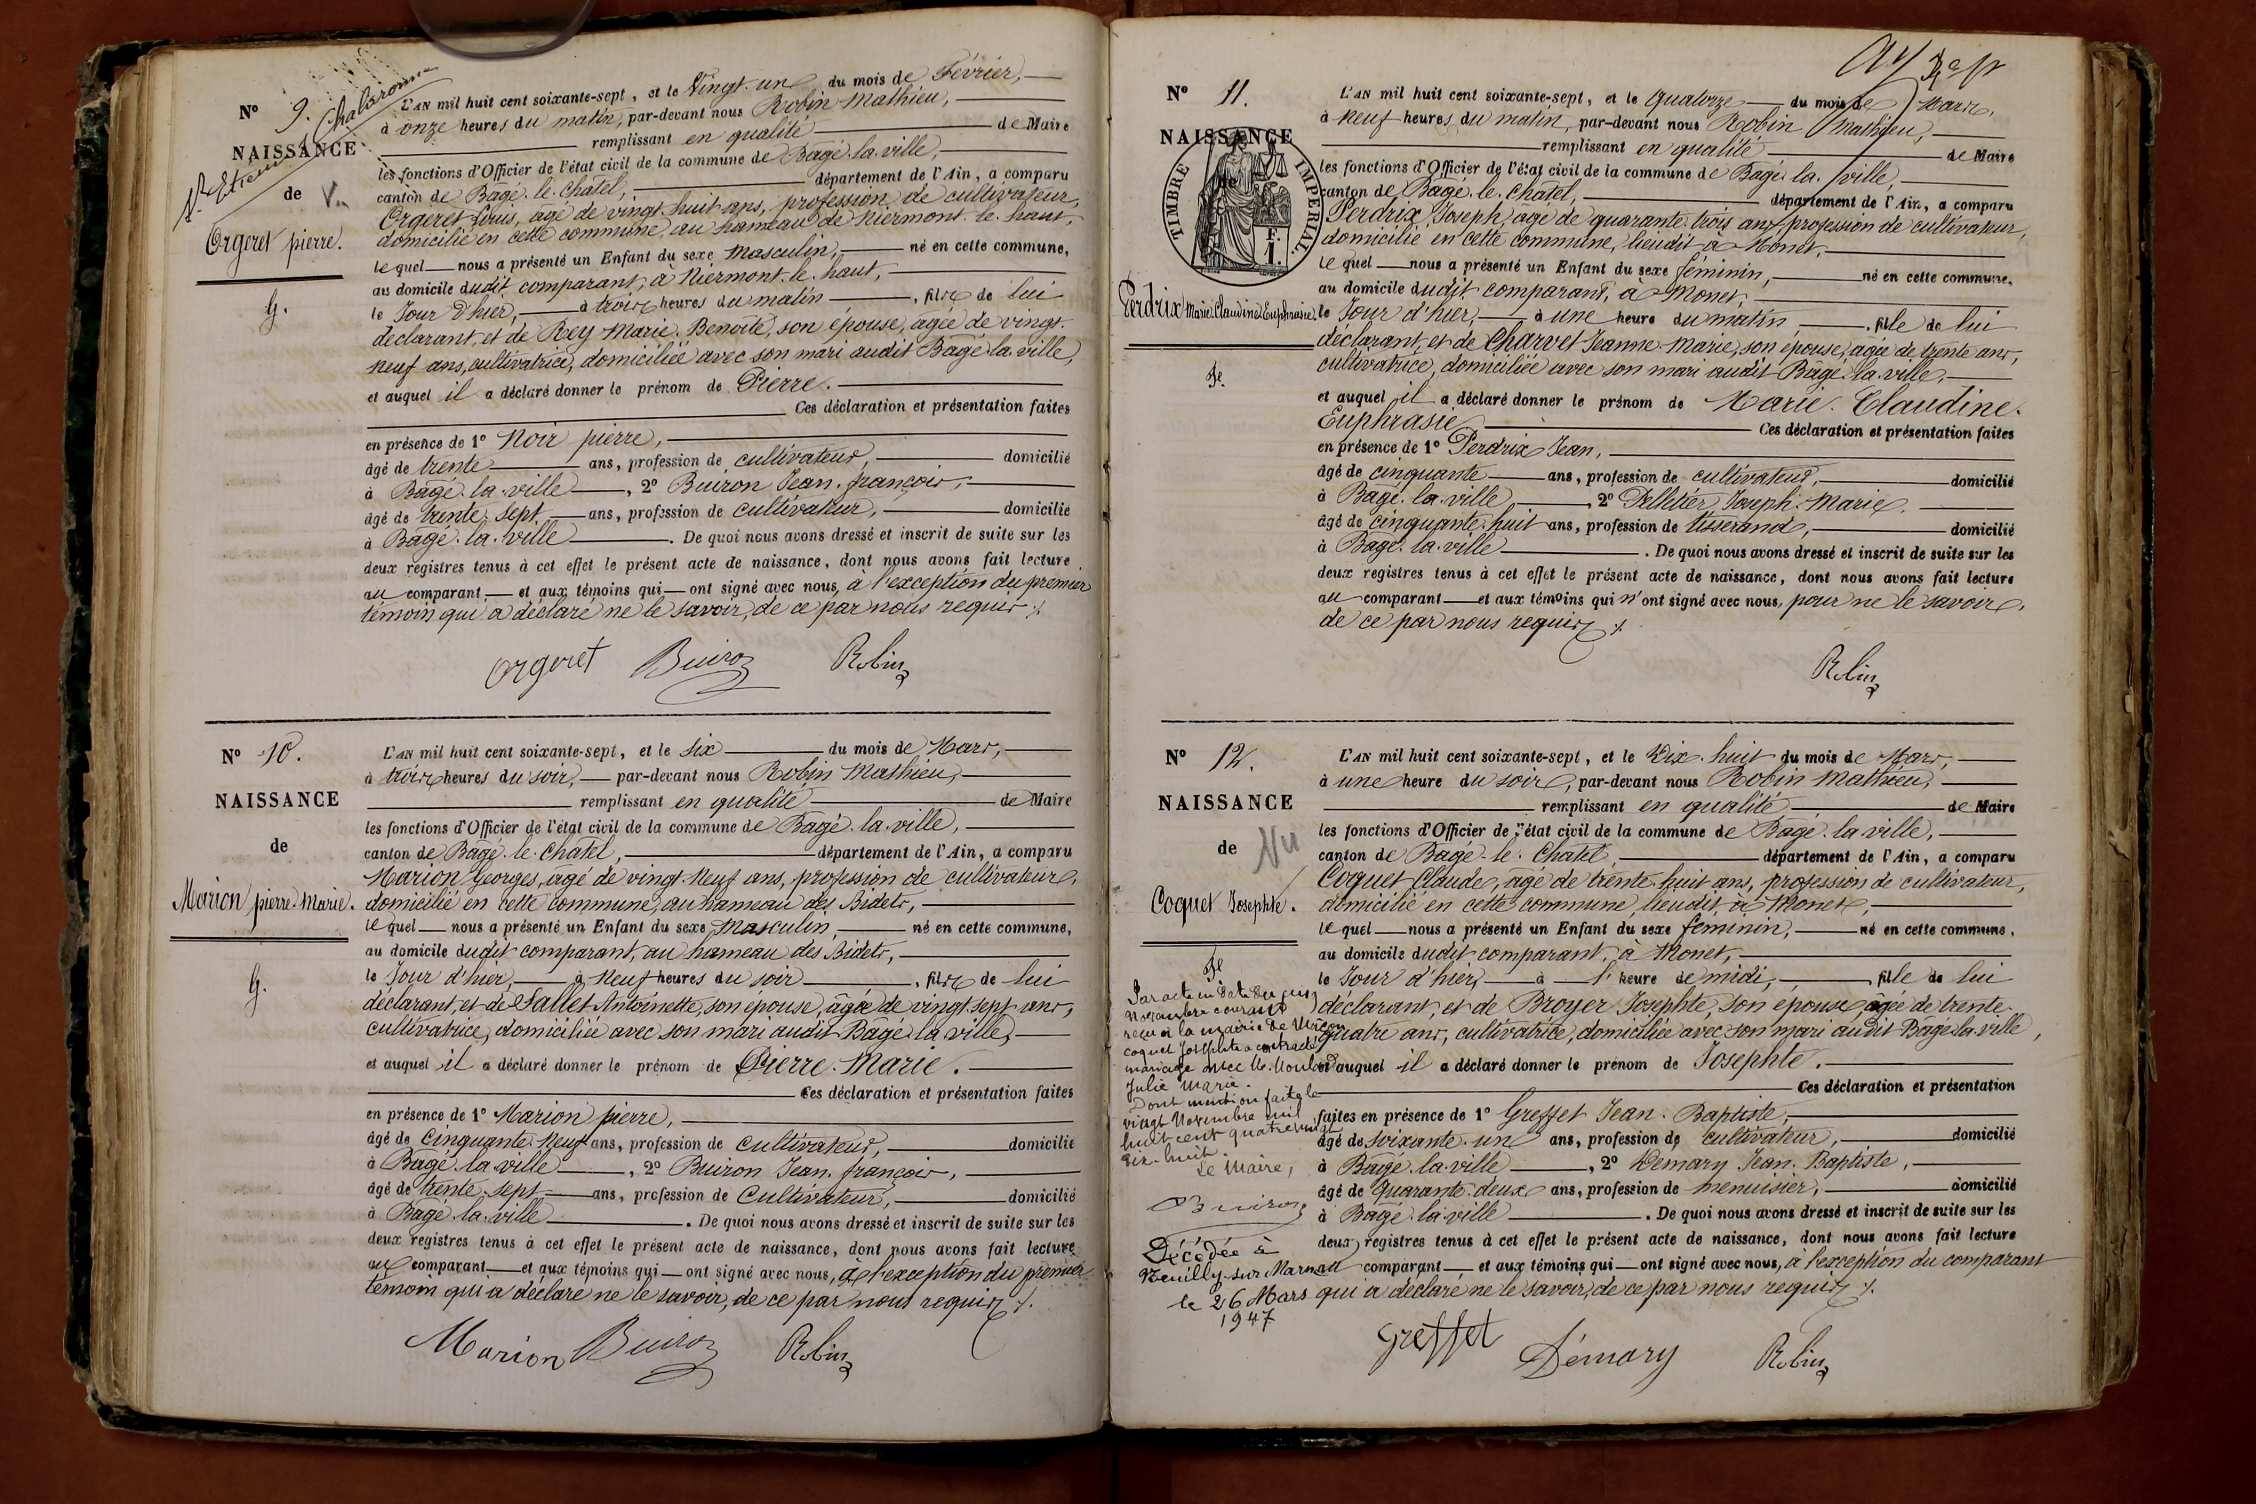 Nº 9.
St Etienne s/ Chalaronne
NAISSANCE
de
Orgeret pierre.
G.
L'AN mil huit cent soixante-sept, et le Vingt-un du mois de Février,
à onze heures du matin, par-devant nous Robin Mathieu,
remplissant en qualité de Maire
les fonctions d'Officier de l'état civil de la commune de Bagé-la-ville,
canton de Bagé-le-Châtel, département de l'Ain, a comparu
Orgeret Denis, âgé de vingt-huit ans, profession de cultivateur,
domicilié en cette commune, au hameau de Niermont-le-haut,
lequel nous a présenté un Enfant du sexe Masculin, né en cette commune,
au domicile dudit comparant, à Niermont-le-haut,
le Jour d'hier, à trois heures du matin, fils de lui
déclarant, et de Rey Marie-Benoîte, son épouse, âgée de vingt-
neuf ans, cultivatrice, domiciliée avec son mari audit Bagé-la-ville,
et auquel il a déclaré donner le prénom de Pierre.
Ces déclaration et présentation faites
en présence de 1º Noir pierre,
âgé de trente ans, profession de cultivateur, domicilié
à Bagé-la-ville, 2º Buiron Jean-françois,
âgé de trente-sept ans, profession de cultivateur, domicilié
à Bagé-la-ville. De quoi nous avons dressé et inscrit de suite sur les
deux registres tenus à cet effet le présent acte de naissance, dont nous avons fait lecture
au comparant et aux témoins qui ont signé avec nous, à l'exception du premier
témoin qui a déclaré ne le savoir, de ce par nous requis ./.
Orgeret Buiron Robin
Nº 10.
NAISSANCE
de
Marion pierre-Marie.
G.
L'AN mil huit cent soixante-sept, et le Six du mois de Mars,
à trois heures du soir, par-devant nous Robin Mathieu,
remplissant en qualité de Maire
les fonctions d'Officier de l'état civil de la commune de Bagé-la-ville,
canton de Bagé-le-Châtel, département de l'Ain, a comparu
Marion Georges, âgé de vingt-neuf ans, profession de cultivateur,
domicilié en cette commune, au hameau des Bidets,
lequel nous a présenté un Enfant du sexe Masculin, né en cette commune,
au domicile dudit comparant, au hameau des Bidets,
le Jour d'hier, à Neuf heures du soir, fils de lui
déclarant, et de Sallet Antoinette, son épouse, âgée de vingt-sept ans,
cultivatrice, domiciliée avec son mari audit Bagé-la-ville,
et auquel il a déclaré donner le prénom de Pierre-Marie.
Ces déclaration et présentation faites
en présence de 1º Marion pierre,
âgé de Cinquante-Neuf ans, profession de cultivateur, domicilié
à Bagé-la-ville, 2º Buiron Jean-françois,
âgé de trente-sept ans, profession de Cultivateur, domicilié
à Bagé-la-ville. De quoi nous avons dressé et inscrit de suite sur les
deux registres tenus à cet effet le présent acte de naissance, dont nous avons fait lecture
au comparant et aux témoins qui ont signé avec nous, à l'exception du premier
témoin qui a déclaré ne le savoir, de ce par nous requis ./.
Marion Buiron Robin
Nº 11.
NAISSANCE
de
TIMBRE IMPERIAL
1 F.
Perdrix Marie-Claudine-Euphrasie
Fe.
L'AN mil huit cent soixante-sept, et le Quatorze du mois de Mars,
à Neuf heures du matin, par-devant nous Robin Mathieu,
remplissant en qualité de Maire
les fonctions d'Officier de l'état civil de la commune de Bagé-la-ville,
canton de Bagé-le-Châtel, département de l'Ain, a comparu
Perdrix Joseph, âgé de quarante-trois ans, profession de cultivateur,
domicilié en cette commune, lieudit à Monet,
lequel nous a présenté un Enfant du sexe féminin, né en cette commune,
au domicile dudit comparant, à Monet,
le Jour d'hier, à une heure du matin, fille de lui
déclarant, et de Charvet Jeanne-Marie, son épouse, âgée de trente ans,
cultivatrice, domiciliée avec son mari audit Bagé-la-ville,
et auquel il a déclaré donner le prénom de Marie-Claudine-
Euphrasie Ces déclaration et présentation faites
en présence de 1º Perdrix Jean,
âgé de cinquante ans, profession de cultivateur, domicilié
à Bagé-la-ville, 2º Pelletier Joseph-Marie,
âgé de cinquante-huit ans, profession de tisserand, domicilié
à Bagé-la-ville. De quoi nous avons dressé et inscrit de suite sur les
deux registres tenus à cet effet le présent acte de naissance, dont nous avons fait lecture
au comparant et aux témoins qui n'ont signé avec nous, pour ne le savoir,
de ce par nous requis ./.
Robin
Nº 12.
NAISSANCE
de
Vu
Coquet Josephte.
Fe
Par acte en date du
Novembre courant
reçu à la mairie de Mâcon
coquet Josephte a contracté
mariage avec
Julie Marie.
Dont mention faite le
vingt Novembre mil
huit cent quatrevingt
dix-huit.
Le Maire,
Buiron
Décédée à
Neuilly-sur-Marne
le 26 Mars
1947
L'AN mil huit cent soixante-sept, et le Dix-huit du mois de Mars,
à une heure du soir, par-devant nous Robin Mathieu,
remplissant en qualité de Maire
les fonctions d'Officier de l'état civil de la commune de Bagé-la-ville,
canton de Bagé-le-Châtel, département de l'Ain, a comparu
Coquet Claude, âgé de trente-huit ans, profession de cultivateur,
domicilié en cette commune, lieudit à Monet,
lequel nous a présenté un Enfant du sexe féminin, né en cette commune,
au domicile dudit comparant, à Monet,
le Jour d'hier, à l'heure de midi, fille de lui
déclarant, et de Broyer Josephte, son épouse, âgée de trente-
quatre ans, cultivatrice, domiciliée avec son mari audit Bagé-la-ville,
et auquel il a déclaré donner le prénom de Josephte.
Ces déclaration et présentation
faites en présence de 1º Greffet Jean-Baptiste,
âgé de soixante-un ans, profession de cultivateur, domicilié
à Bagé-la-ville, 2º Demary Jean-Baptiste,
âgé de Quarante-deux ans, profession de menuisier, domicilié
à Bagé-la-ville. De quoi nous avons dressé et inscrit de suite sur les
deux registres tenus à cet effet le présent acte de naissance, dont nous avons fait lecture
au comparant et aux témoins qui ont signé avec nous, à l'exception du comparant
qui a déclaré ne le savoir, de ce par nous requis ./.
Greffet Démary Robin